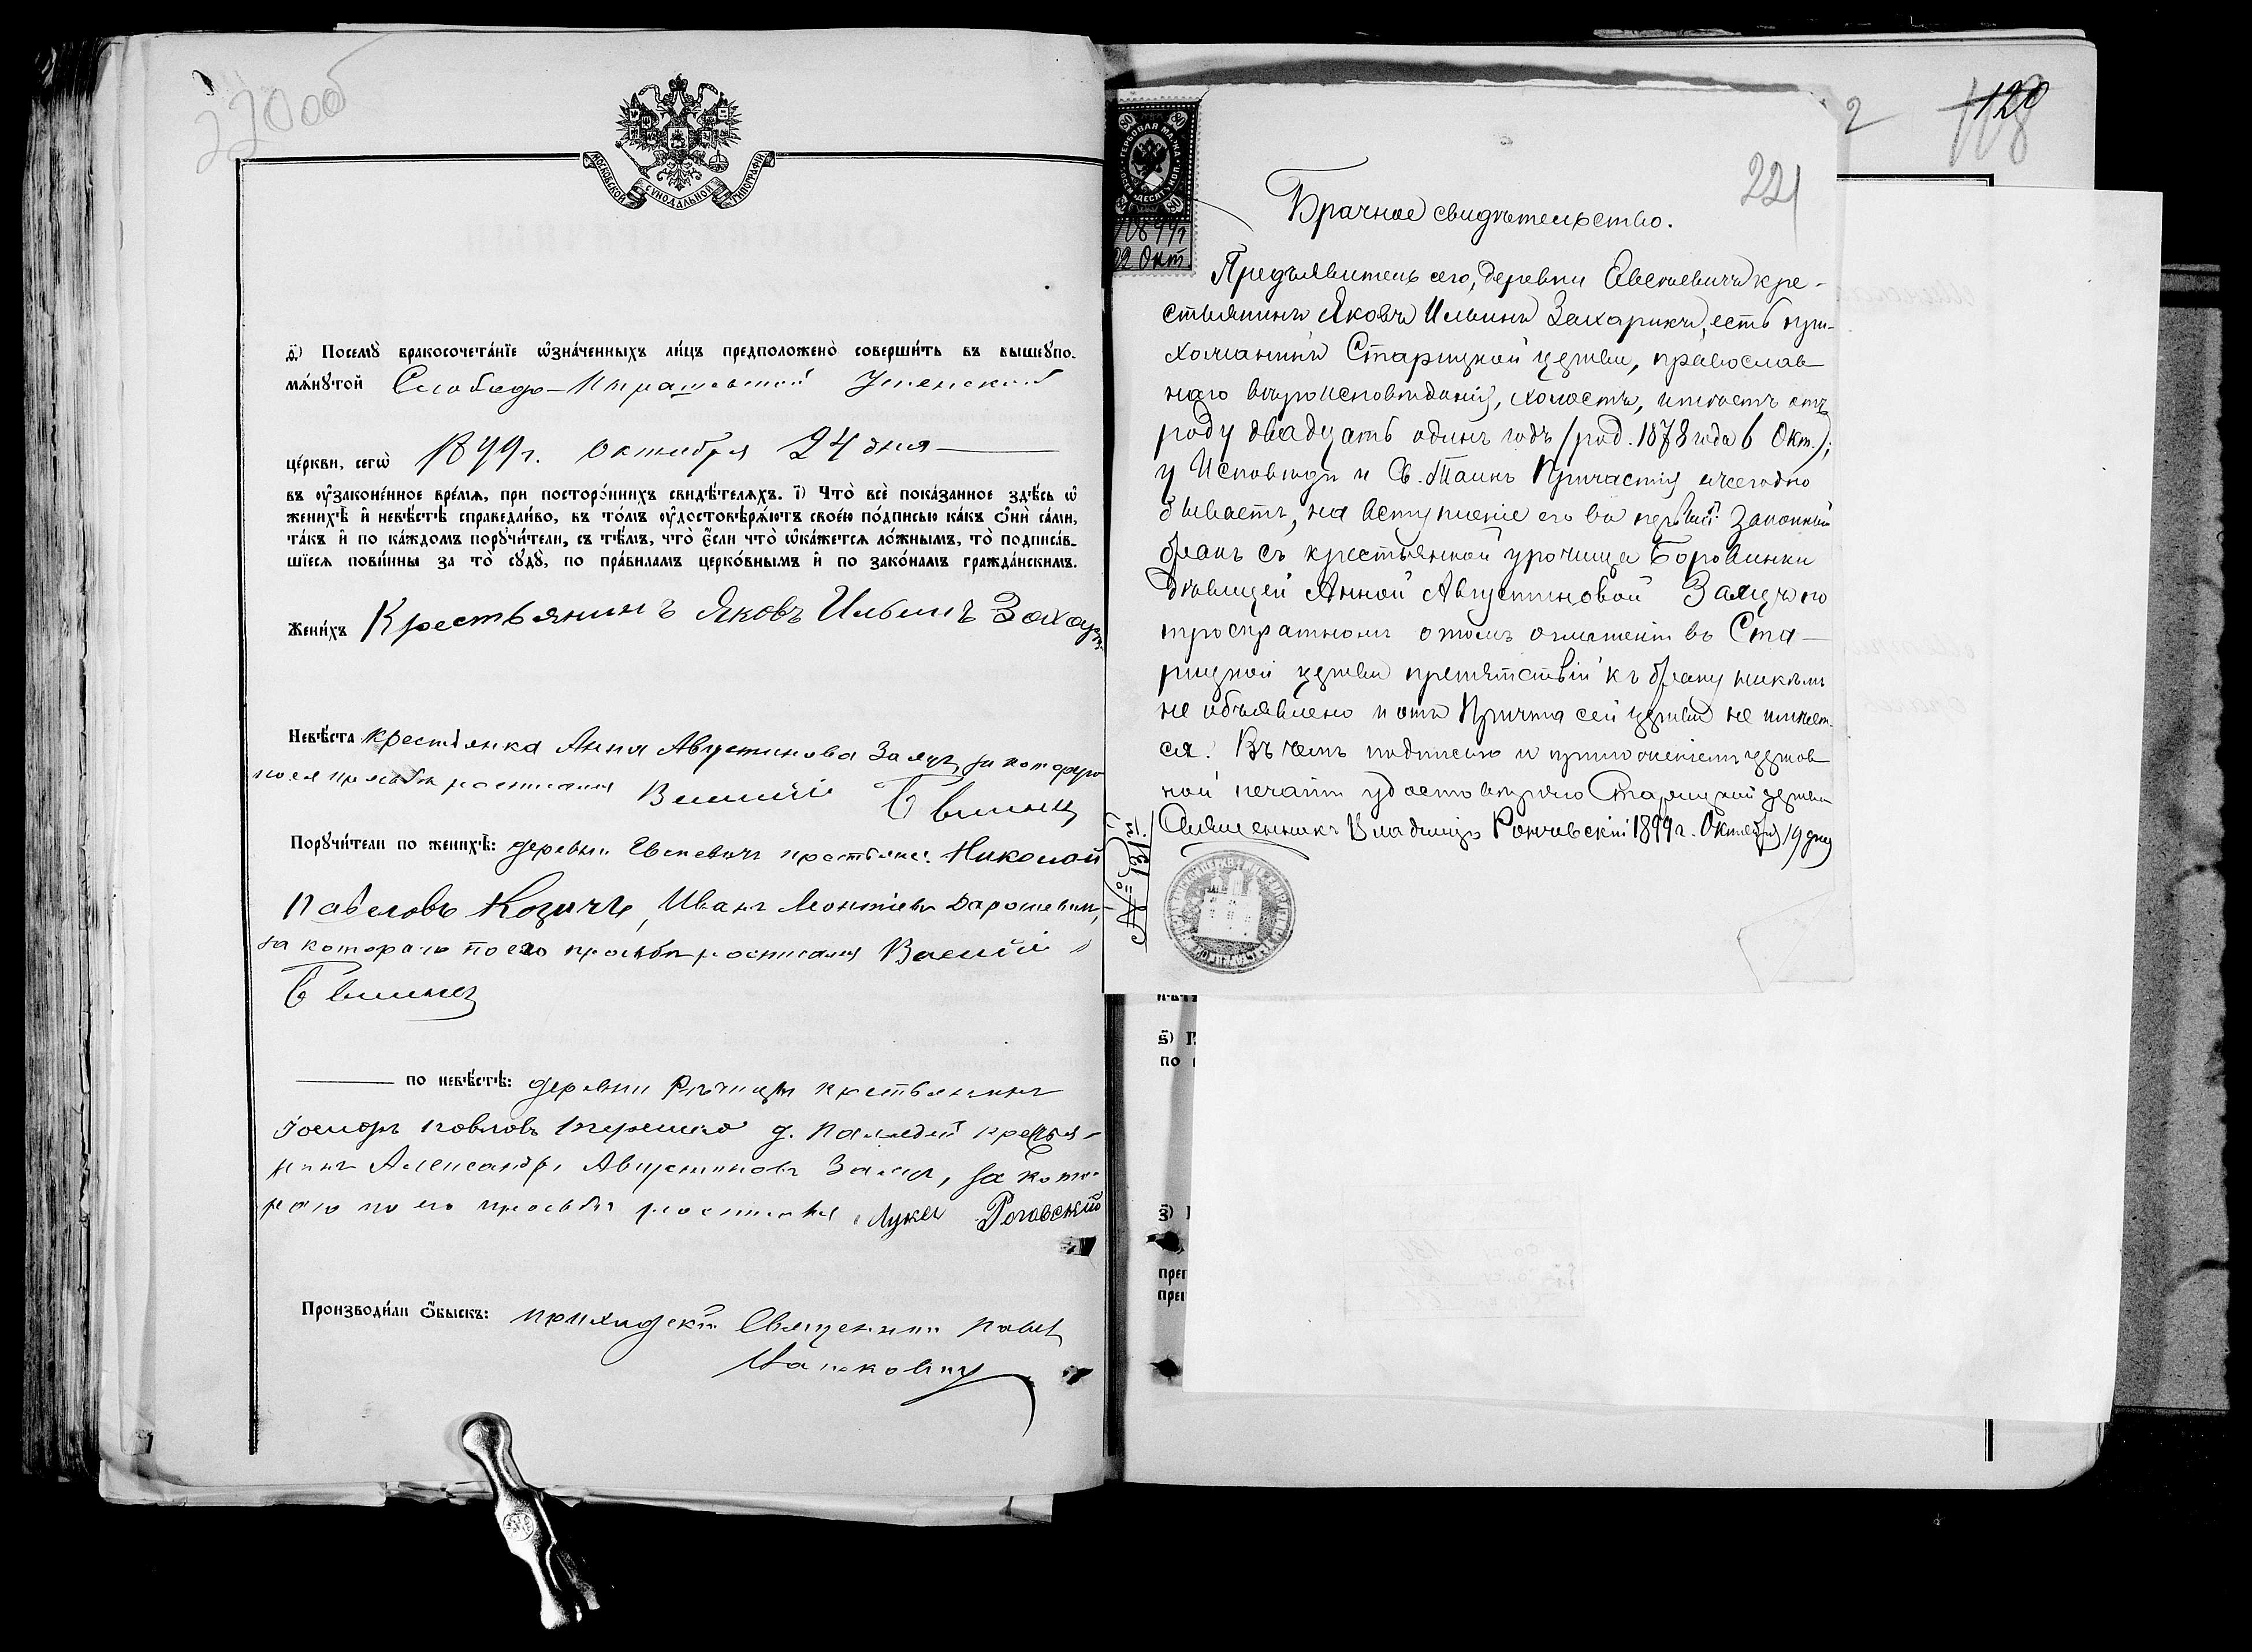 220об
МОСКОВСКОЙ СѴНОДАЛЬНОЙ ТИПОГРАФІИ
ѳ҃) Посемꙋ̀ бракосочета́нїе ѡ҆зна́ченныхъ ли́цъ предположено̀ соверши́ть въ вышеꙋпо-
мѧ́нꙋтой Слободо- Успенской
це́ркви, сегѡ̀ 1899г. Октября 24 дня
въ ᲂу҆зако́ненное вре́мѧ, при посторо́ннихъ свидѣ́телѧхъ. і҃) Что̀ всѐ пока́занное здѣ́сь ѡ҆
женихѣ̀ и҆ невѣ́стѣ справедли́во, въ то́мъ ᲂу҆достовѣрѧ́ютъ свое́ю по́дписью ка́къ ѻ҆нѝ са́ми,
та́къ и҆ по ка́ждомъ порꙋчи́тели, съ тѣ́мъ, что̀ є҆́сли что̀ ѡ҆ка́жетсѧ ло́жнымъ, то̀ подписа́в-
шїесѧ пови́нны за то̀ сꙋдꙋ̀, по пра́виламъ церко́внымъ и҆ по зако́намъ гражда́нскимъ.
Жени́хъ Крестьянинъ Яковъ Ильинъ Захар
Невѣ́ста крестьянка Анна Августинова Заяцъ, за котору
по ея прозьбѣ росписался
Порꙋчи́тели по женихѣ̀: деревни Евсеевичъ крестьяне: Николай
Павловъ Козичъ, Иванъ Леонтіевъ Дарошевичъ,
за котораго по его прозьбѣ росписался Василій
по невѣ́стѣ: деревни Рѣчицы крестьянинъ
Іосифъ Павловъ Терешко д. крестья-
нинъ Александръ Августиновъ Заяцъ, за кото-
раго по его прозьбѣ росписался Лука Роговскій
Производи́ли ѻ҆́быскъ: приходскій Священникъ Павелъ
2 120
118
221
ГЕРБОВАЯ МАРКА
ВОСЕМЬДЕСЯТЪ КОП.
80
1899г
22 Окт.
Брачное свидѣтельство.
Предъявитель сего, деревни Евсеевичъ кре-
стьянинъ Яковъ Ильинъ Захарикъ, есть при-
хожанинъ Старицкой церкви, православ-
наго вѣроисповѣданія, холостъ, имѣетъ отъ
роду двадцать одинъ годъ (род. 1878 года 6 Окт.);
у Исповѣди и Св. Таинъ Причастія ежегодно
бываетъ, на вступленіе его въ первый законный
бракъ съ крестьянкой урочища Боровинки
дѣвицей Анной Августиновой Заяцъ по
троекратномъ о томъ оглашеніи въ Ста-
рицкой церкви препятствій къ браку никѣмъ
не объявлено и отъ Причта сей церкви не имѣет-
ся. Въ чемъ подписью и приложеніемъ церков-
ной печати удостовѣряю Старицкой церкви
Священникъ Владиміръ 1899г. Октября 19 дня
№ 131